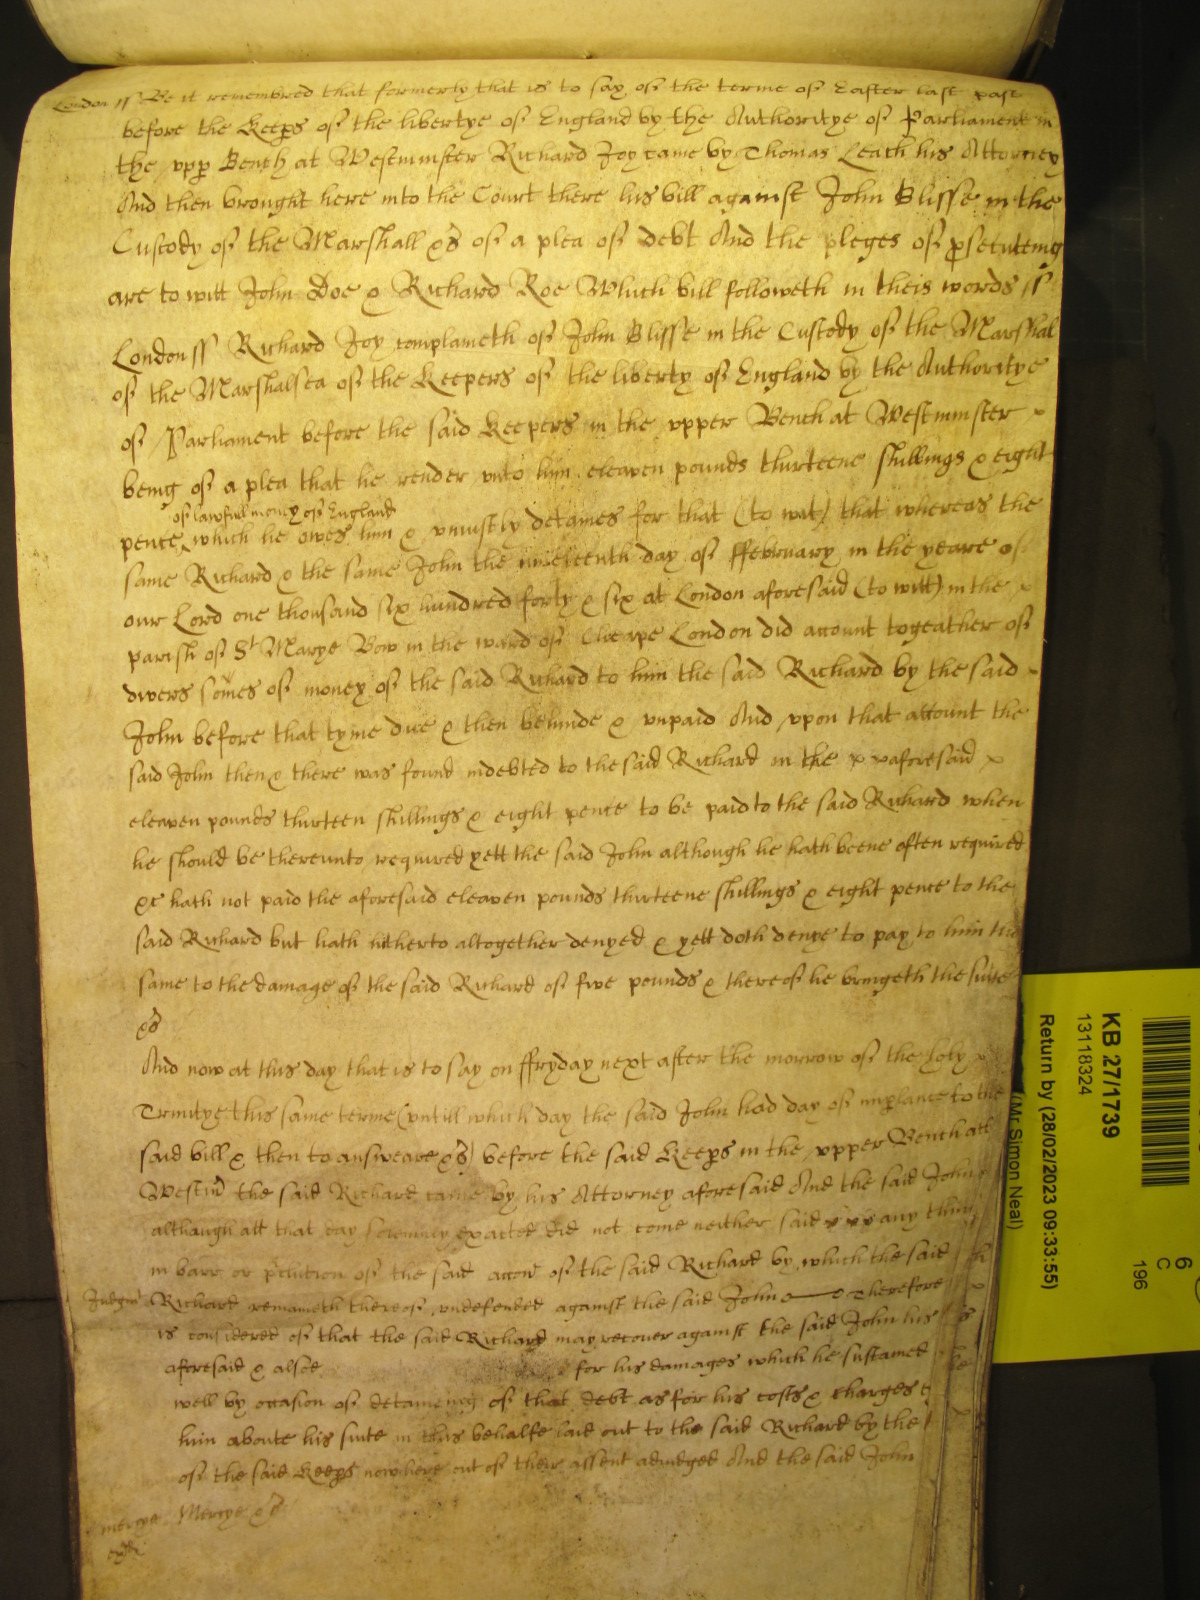 London ss Be it remembred that formerly that is to say of the terme of Easter last past
before the Keeps of the libertye of England by the Authoritye of Parliament in
the upp Bench at Westminster Richard Joy came by Thomas Leach his Attorney
And then brought here into the Court there his bill against John Blisse in the
Custody of the Marshall &c of a plea of debt And the pleges of psecuteing
are to witt John Doe & Richard Roe Which bill followeth in theis words ss
London ss Richard Joy complaineth of John Blisse in the Custody of the Marshal
of the Marshalsea of the Keepers of the liberty of England by the Authoritye
of Parliament before the said Keepers in the upper Bench at Westminster
being of a plea that he render unto him eleaven pounds thirteene shillings & eight
of lawfull money of England
pence which he owes him & uniustly detaines for that (to wit) that whereas the
same Richard & the same John the nineteenth day of ffebruary in the yeare of
our Lord one thousand six hundred forty & six at London aforesaid (to witt) in the
parish of St Marye Bow in the ward of Cheape London did account togeather of
divers somes of money of the said Richard to him the said Richard by the said
John before that tyme due & then behinde & unpaid And upon that account the
said John then & there was found indebted to the said Richard in the aforesaid
eleaven pounds thirteen shillings & eight pence to be paid to the said Richard when
he should be thereunto required yett the said John although he hath beene often required
&c hath not paid the aforesaid eleaven pounds thirteene shillings & eight pence to the
said Richard but hath hitherto altogether denyed & yett doth denye to pay to him the
same to the damage of the said Richard of five pounds & thereof he bringeth the suite
&c
And now at this day that is to say on ffryday next after the morrow of the holy
Trinitye this same terme (untill which day the said John had day of imparlance to the
said bill & then to answeare &c) before the said Keeps in the upper Bench att
Westm the said Richard came by his Attorney aforesaid And the said John
although att that day solemnly exacted did not come neither said any thing
in barr or pclution of the said accon of the said Richard by which the said
Judgmt Richard remaineth thereof undefended against the said John Therefore
is considered of that the said Richard may recover against the said John his
aforesaid & alsoe for his damages which he sustained
well by occasion of detaineing of that debt as for his costs & charges
him aboute his suite in this behalfe laid out to the said Richard by the
of the said Keeps now here out of their assent adiudged And the said John
mercye Mercye &c
KB 27/1739
13118324
Return by (28/02/2023 09:33:55)
(Mr Simon Neal)
6
C
196